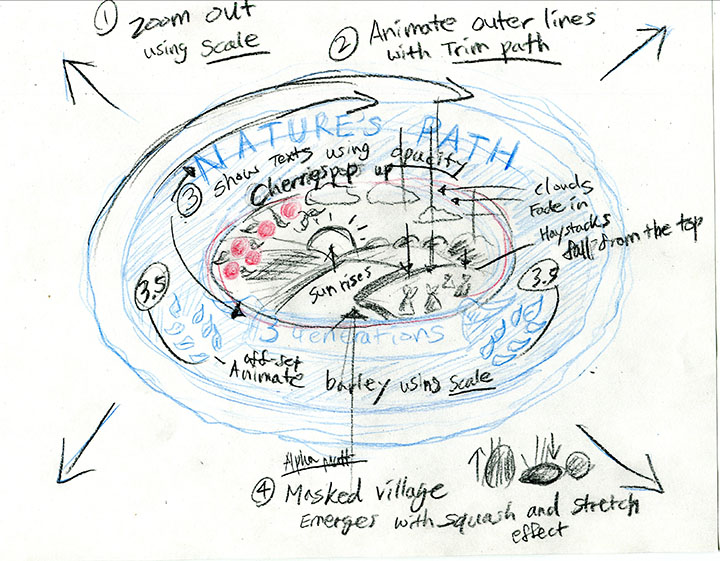 ① Zoom out
using Scale
② Animate outer lines
with Trim path
NATURE'S PATH
③ show Texts using opacity
Cherries pop up
clouds
Fade in
Haystacks
fall from the top
sun rises
3.5
3.5
3 Generations
off-set
Animate barley using Scale
Alpha matt
④ Masked village
Emerges with squash and stretch
effect